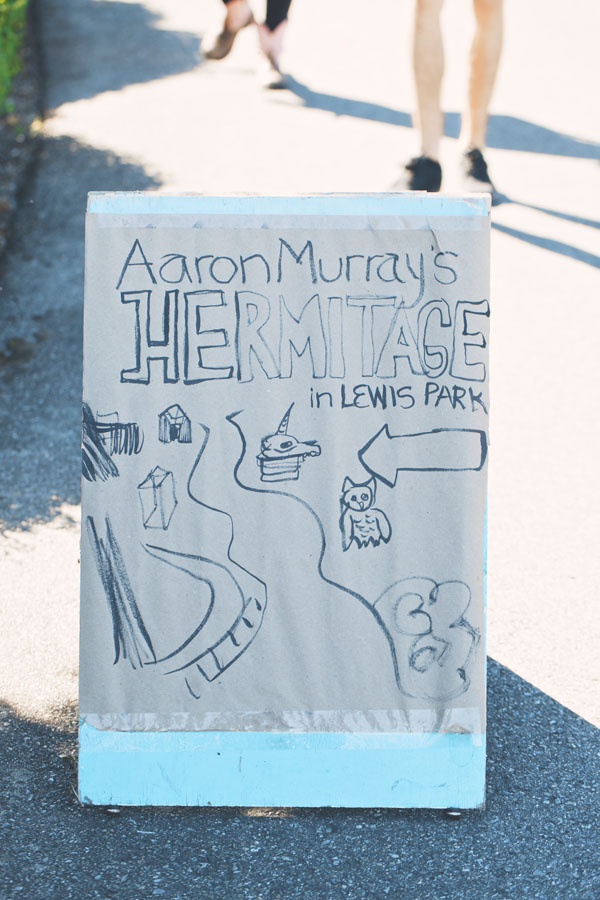 Aaron Murray's
HERMITAGE
in LEWIS PARK